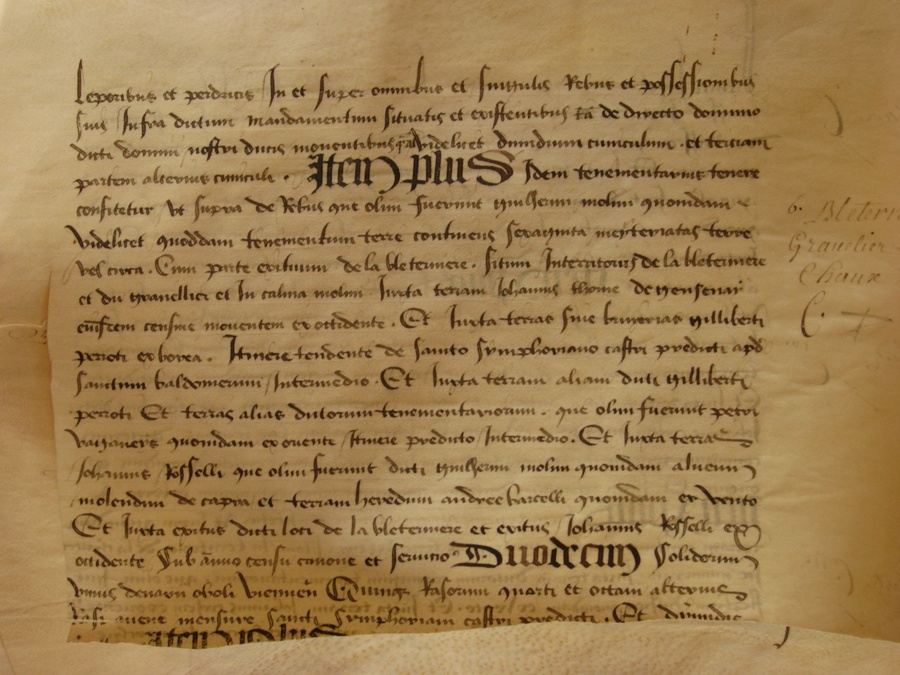 Leporibus et perdicis In et super omnibus et singulis Rebus et possessionibus
suis Infra dictum mandamentum situatis et existentibus de directo dominio
dicti domini nostri ducis moventibus videlicet dimidium cuniculum . et terciam
partem alterius cuniculi . Item plus Idem tenementarius tenere
confitetur Ut supra de Rebus que olim fuerunt guillermi molini quondam
Videlicet quoddam tenementum terre continens sexaginta meyteriatas terre
vel circa . Cum parte exituum de la bleterniere . situm In territoriis de la bleterniere
et du gravellier et In calma molini Iuxta terram Iohannis thome
censive moventem ex occidente . Et Iuxta terras sive bruyerias gilliberti
perroti ex borea . Itinere tendente de sancto symphoriano castri predicti apd
sanctum baldomerum Intermedio . Et Iuxta terram aliam dicti gilliberti
perroti Et terras alias dictorum tenementariorum . que olim fuerunt petri
quondam ex oriente Itinere predicto Intermedio . Et Iuxta terra
Iohannis Rosselli que olim fuerunt dicti guillermi molini quondam
molendini de capra et terram heredum andree barcelli quondam ex vento
Et Iuxta exitus dicti loci de la bleterniere et exitus Iohannis Rosselli ex
occidente Sub annuo censu canone et servicio Duodecim Solidorum
unius denarii oboli viennen Quinque Rasorum quarti et octavi alterius
Rasi avene mensure sancti Symphoriani castri predicti . Et dimidie
Item plus
6. Bletern
Gravelier
Chaux